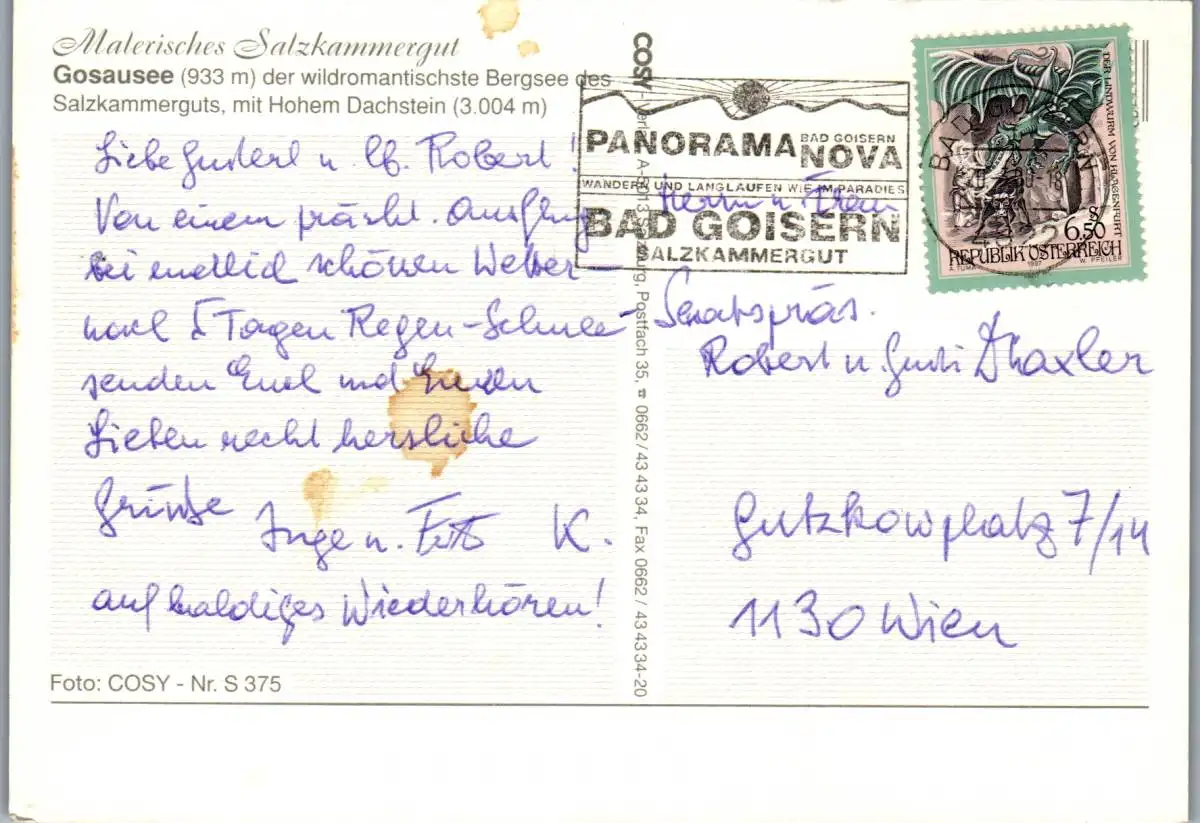 Malerisches Salzkammergut
Gosausee (933 m) der wildromantischste Bergsee des
Salzkammerguts, mit Hohem Dachstein (3.004 m)
Liebe Gusterl u lb. Robert!
Von einem prächt. Ausflug
bei endlich schönen Wetter –
nach 5 Tagen Regen-Schnee –
senden Euch und Euren
Lieben recht herzliche
Grüße
Inge u. Fritz K.
auf baldiges Wiederhören!
Foto: COSY - Nr. S 375
COSY
Postfach 35, ☎ 0662/43 43 34, Fax 0662/43 43 34-20
PANORAMA BAD GOISERN
NOVA
WANDERN UND LANGLAUFEN WIE IM PARADIES
BAD GOISERN
SALZKAMMERGUT
DER LINDWURM VON KLAGENFURT
S
6,50
REPUBLIK ÖSTERREICH
1997 W. PFEILER
Herrn u. Frau
Senatspräs.
Robert u. Gusti Thaxler
Gutzkowplatz 7/14
1130 Wien